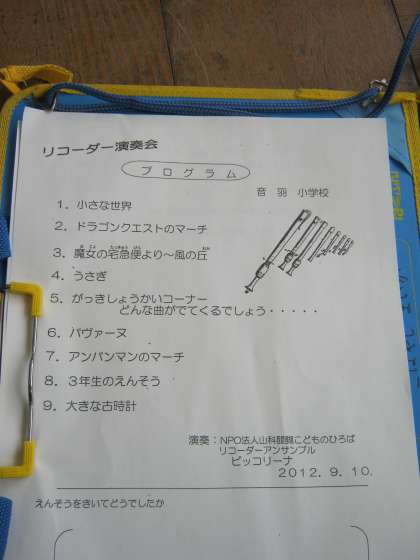 リコーダー演奏会
プログラム
音羽 小学校
1．小さな世界
2．ドラゴンクエストのマーチ
3．魔女の宅急便より～風の丘
4．うさぎ
5．がっきしょうかいコーナー
どんな曲がでてくるでしょう・・・・・
6．パヴァーヌ
7．アンパンマンのマーチ
8．3年生のえんそう
9．大きな古時計
演奏：NPO法人山科醍醐こどものひろば
リコーダーアンサンブル
ピッコリーナ
2012．9．10．
えんそうをきいてどうでしたか